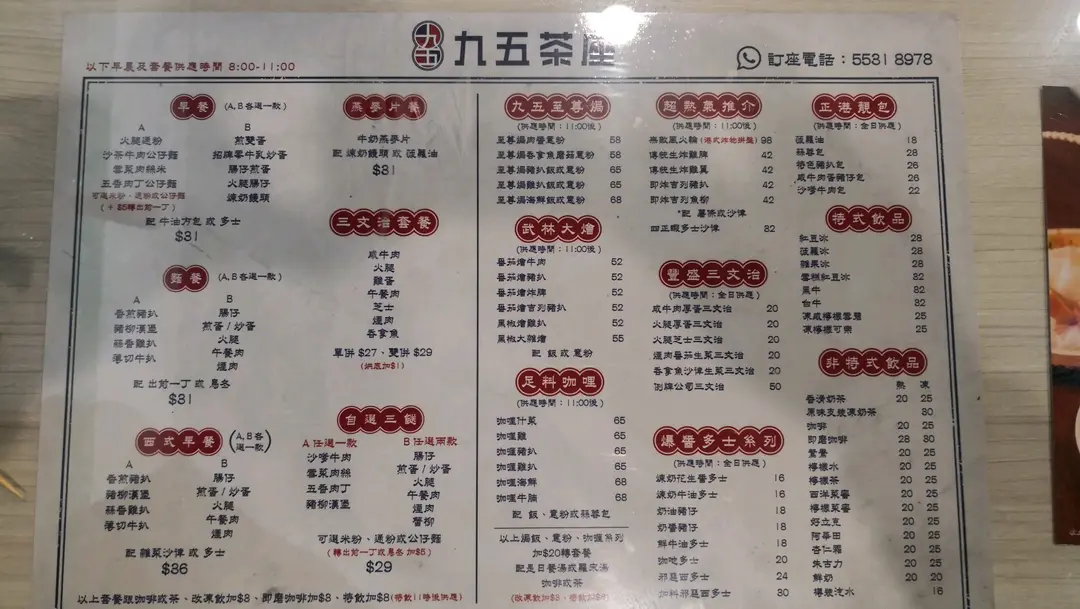 九五茶座
以下早晨及套餐供應時間 8:00-11:00
訂座電話：5581 8978
早餐 (A, B各選一款)
A B
火腿通粉 煎雙蛋
沙茶牛肉公仔麵 招牌零牛乳炒蛋
雪菜肉絲米 腸仔煎蛋
五香肉丁公仔麵 火腿腸仔
可選米粉、通粉或公仔麵 煉奶饅頭
(+ $5轉出前一丁)
配 牛油方包 或 多士
$31
麵餐 (A, B各選一款)
A B
香煎豬扒 腸仔
豬柳漢堡 煎蛋 / 炒蛋
蒜香雞扒 火腿
薄切牛扒 午餐肉
煙肉
配 出前一丁 或 烏冬
$31
西式早餐 (A, B各選一款)
A B
香煎豬扒 腸仔
豬柳漢堡 煎蛋 / 炒蛋
蒜香雞扒 火腿
薄切牛扒 午餐肉
煙肉
配 雜菜沙律 或 多士
$36
燕麥片餐
牛奶燕麥片
配 煉奶饅頭 或 菠蘿油
$31
三文治套餐
咸牛肉
火腿
雞蛋
午餐肉
芝士
煙肉
吞拿魚
單併 $27、雙併 $29
(烘底加$1)
自選三餸
A 任選一款 B 任選兩款
沙嗲牛肉 腸仔
雪菜肉絲 煎蛋 / 炒蛋
五香肉丁 火腿
豬柳漢堡 午餐肉
煙肉
蟹柳
可選米粉、通粉或公仔麵
(轉出前一丁或烏冬 加$5)
$29
以上套餐跟咖啡或茶、改凍飲加$3、即磨咖啡加$3、特飲加$8(特飲11時後供應)
九五至尊焗
(供應時間：11:00後)
至尊焗肉醬意粉 58
至尊焗吞拿魚蘑菇意粉 58
至尊焗豬扒飯或意粉 65
至尊焗雞扒飯或意粉 65
至尊焗海鮮飯或意粉 68
武林大燴
(供應時間：11:00後)
番茄燴牛肉 52
番茄燴豬扒 52
番茄燴炸脾 52
番茄燴吉列豬扒 52
黑椒燴雞扒 52
黑椒大雜燴 55
配 飯 或 意粉
足料咖喱
(供應時間：11:00後)
咖喱什菜 65
咖喱雞 65
咖喱豬扒 65
咖喱雞扒 65
咖喱海鮮 68
咖喱牛腩 68
配 飯、意粉或蒜蓉包
以上焗飯、意粉、咖喱系列
加$20轉套餐
配是日餐湯或羅宋湯
咖啡或茶
超熱氣推介
(供應時間：11:00後)
無敵風火輪 98
傳統生炸雞脾 42
傳統生炸雞翼 42
即炸吉列豬扒 42
即炸吉列魚柳 42
*配 薯條或沙律
四正蝦多士沙律 32
豐盛三文治
(供應時間：全日供應)
咸牛肉厚蛋三文治 20
火腿厚蛋三文治 20
火腿芝士三文治 20
煙肉番茄生菜三文治 20
吞拿魚沙律生菜三文治 20
例牌公司三文治 50
爆醬多士系列
(供應時間：全日供應)
煉奶花生醬多士 16
煉奶牛油多士 16
奶油豬仔 18
奶醬豬仔 18
鮮牛油多士 18
咖吔多士 20
邪惡西多士 24
加料邪惡西多士 30
正港靚包
(供應時間：全日供應)
菠蘿油 18
蒜蓉包 28
特色豬扒包 26
咸牛肉蛋豬仔包 26
沙嗲牛肉包 22
特式飲品
紅豆冰 28
菠蘿冰 28
雜果冰 28
雪糕紅豆冰 32
黑牛 32
白牛 32
凍咸檸檬雪碧 25
凍檸檬可樂 25
非特式飲品
熱 凍
香滑奶茶 20 25
原味支裝凍奶茶 30
咖啡 20 25
即磨咖啡 28 30
鴛鴦 20 25
檸檬水 20 25
檸檬茶 20 25
西洋菜蜜 20 25
檸檬菜蜜 20 25
好立克 20 25
阿華田 20 25
杏仁霜 20 25
朱古力 20 25
鮮奶 20 20
樽裝汽水 16